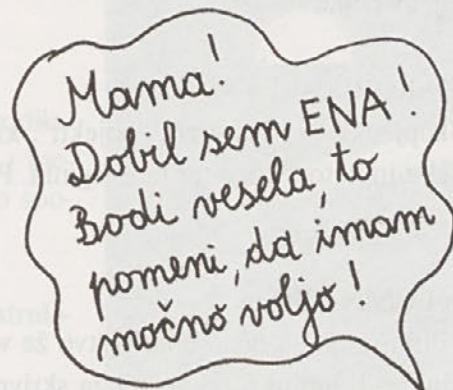 Mama!
Dobil sem ENA!
Bodi vesela, to
pomeni, da imam
močno voljo!